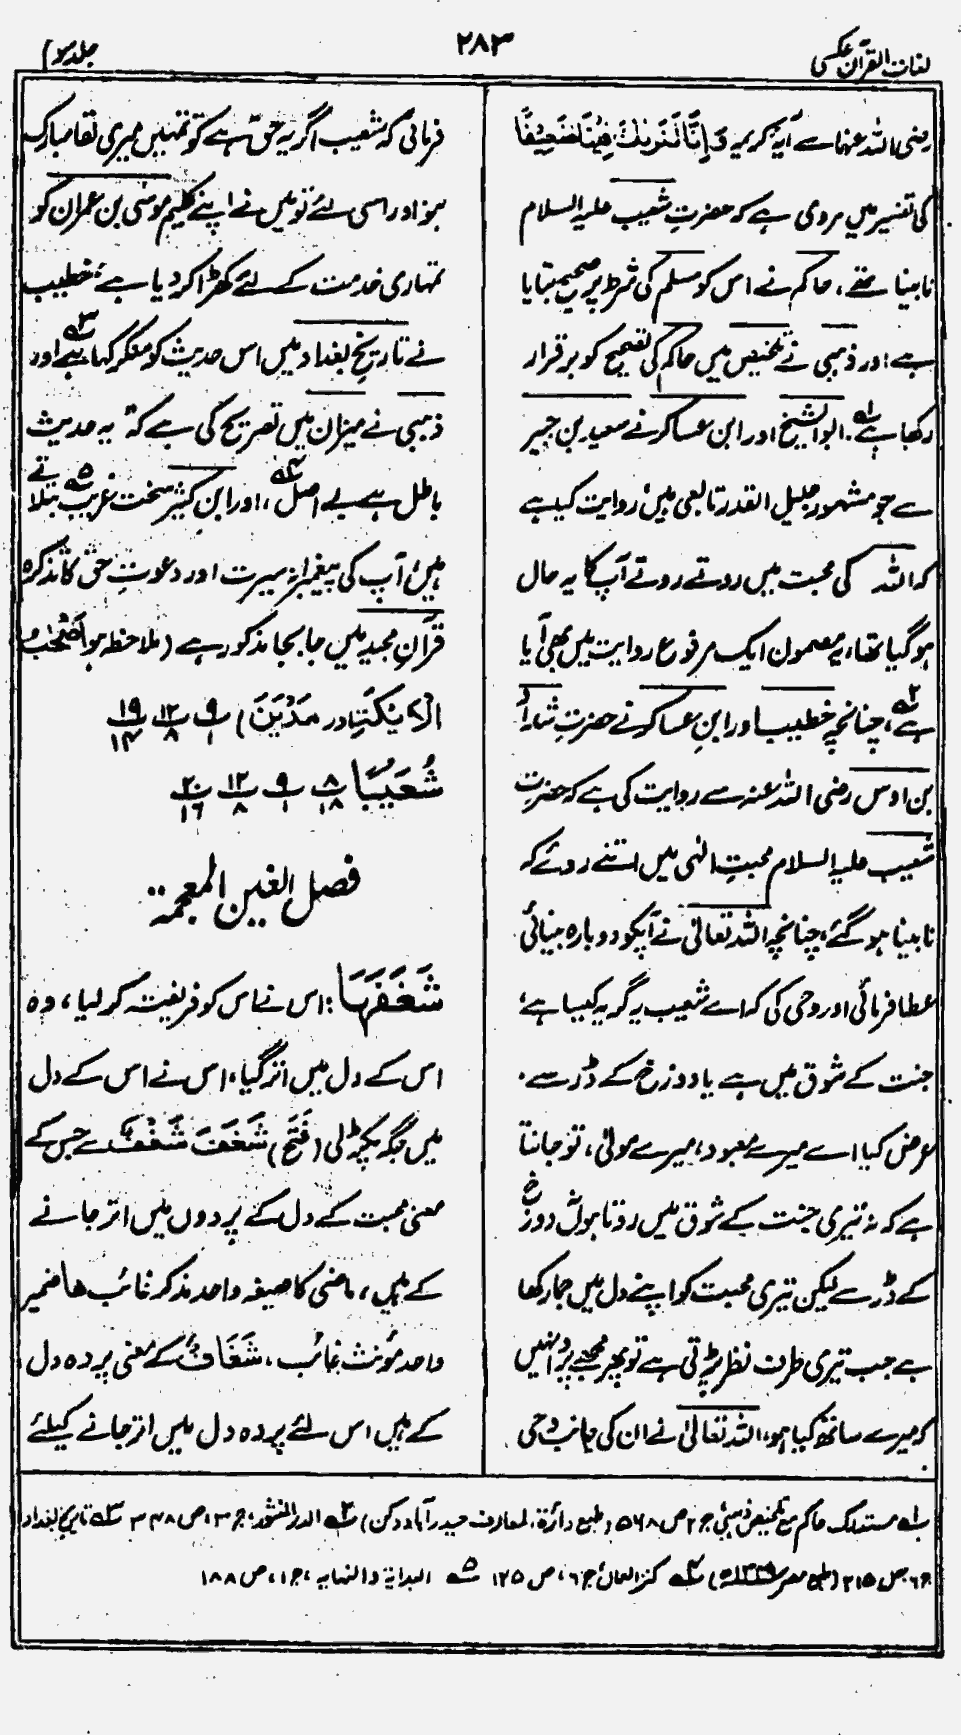 لغات القرآن عکسی
۲۸۳
جلد سوم
رضی اللہ عنہما سے آیۂ کریمہ وَاِنَّا لَنَرٰىكَ فِيْنَا ضَعِيْفًا
کی تفسیر میں مروی ہے کہ حضرتِ شعیب علیہ السلام
نابینا تھے، حاکم نے اس کو مسلم کی شرط پر صحیح بتایا
ہے اور ذہبی نے تلخیص میں حاکم کی تصحیح کو برقرار
رکھا ہے۔ ابو الشیخ اور ابن عساکر نے سعید بن جبیر
سے جو مشہور جلیل القدر تابعی ہیں روایت کی ہے
کہ اللہ کی محبت میں روتے روتے آپ کا یہ حال
ہو گیا تھا، یہ مضمون ایک مرفوع روایت میں بھی آیا
ہے، چنانچہ خطیب اور ابنِ عساکر نے حضرتِ شداد
بن اوس رضی اللہ عنہ سے روایت کی ہے کہ حضرت
شعیب علیہ السلام محبتِ الٰہی میں اتنے روئے کہ
نابینا ہو گئے، چنانچہ اللہ تعالیٰ نے آپکو دوبارہ بینائی
عطا فرمائی اور وحی کی کہ اے شعیب یہ گریہ کیسا ہے؛
جنت کے شوق میں ہے یا دوزخ کے ڈر سے۔
عرض کیا اے میرے معبود، میرے مولیٰ، تو جانتا
ہے کہ نہ تیری جنت کے شوق میں روتا ہوں نہ دوزخ
کے ڈر سے لیکن تیری محبت کو اپنے دل میں جما رکھا
ہے جب تیری طرف نظر پڑتی ہے تو پھر مجھے پروا نہیں
کہ میرے ساتھ کیا ہو، اللہ تعالیٰ نے ان کی جانب وحی
فرمائی کہ شعیب اگر یہ حق ہے تو تمہیں میری لقا مبارک
ہو اور اسی لئے تو میں نے اپنے کلیم موسٰی بن عمران کو
تمہاری خدمت کے لئے کھڑا کر دیا ہے؛ خطیب
نے تاریخ بغداد میں اس حدیث کو منکر کہا ہے اور
ذہبی نے میزان میں تصریح کی ہے کہ یہ حدیث
باطل ہے بے اصل، اور ابن کثیر سخت غریب بتلاتے
ہیں آپ کی پیغمبرانہ سیرت اور دعوتِ حق کا تذکرہ
قرآنِ مجید میں جا بجا مذکور ہے (ملاحظہ ہو اَصْحٰبُ
الْاَيْكَةِ اور مَدْيَنَ) ۹/۱ ۱۲/۸ ۱۹/۱۴
شُعَيْبًا ۸/۱۸ ۹/۱ ۱۲/۸ ۲۰/۱۶
فصل الغین المعجمۃ
شَغَفَهَا: اس نے اس کو فریفتہ کر لیا، وہ
اس کے دل میں اتر گیا، اس نے اس کے دل
میں جگہ پکڑ لی (فَتَحَ) شَغَفَ شَغْفٌ سے جس کے
معنی محبت کے دل کے پردوں میں اتر جانے
کے ہیں، ماضی کا صیغہ واحد مذکر غائب ھا ضمیر
واحد مؤنث غائب، شَغَافٌ کے معنی پردہ دل
کے ہیں اس لئے پردہ دل میں اتر جانے کیلئے
۱؎ مستدرک حاکم مع تلخیص ذہبی ج۲ ص ۵۶۸ (طبع دائرۃ المعارف حیدرآباد دکن) ۲؎ الدر المنثور، ج۳، ص ۳۴۸ ۳؎ تاریخ بغداد
ج۶ ص ۳۱۵ (طبع مصر ۱۳۴۹ھ) ۴؎ کنز العمال ج۶، ص ۱۲۵ ۵؎ البدایۃ والنہایہ، ج۱، ص ۱۸۸